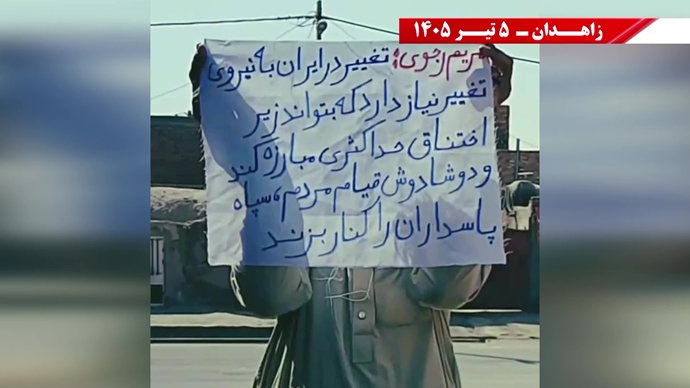 زاهدان ــ ۵ تیر ۱۴۰۵
مریم رجوی؛ تغییر در ایران به نیروی
تغییر نیاز دارد که بتواند زیر
اختناق حداکثری مبارزه کند
و دوشادوش قیام مردم، سپاه
پاسداران را کنار بزند